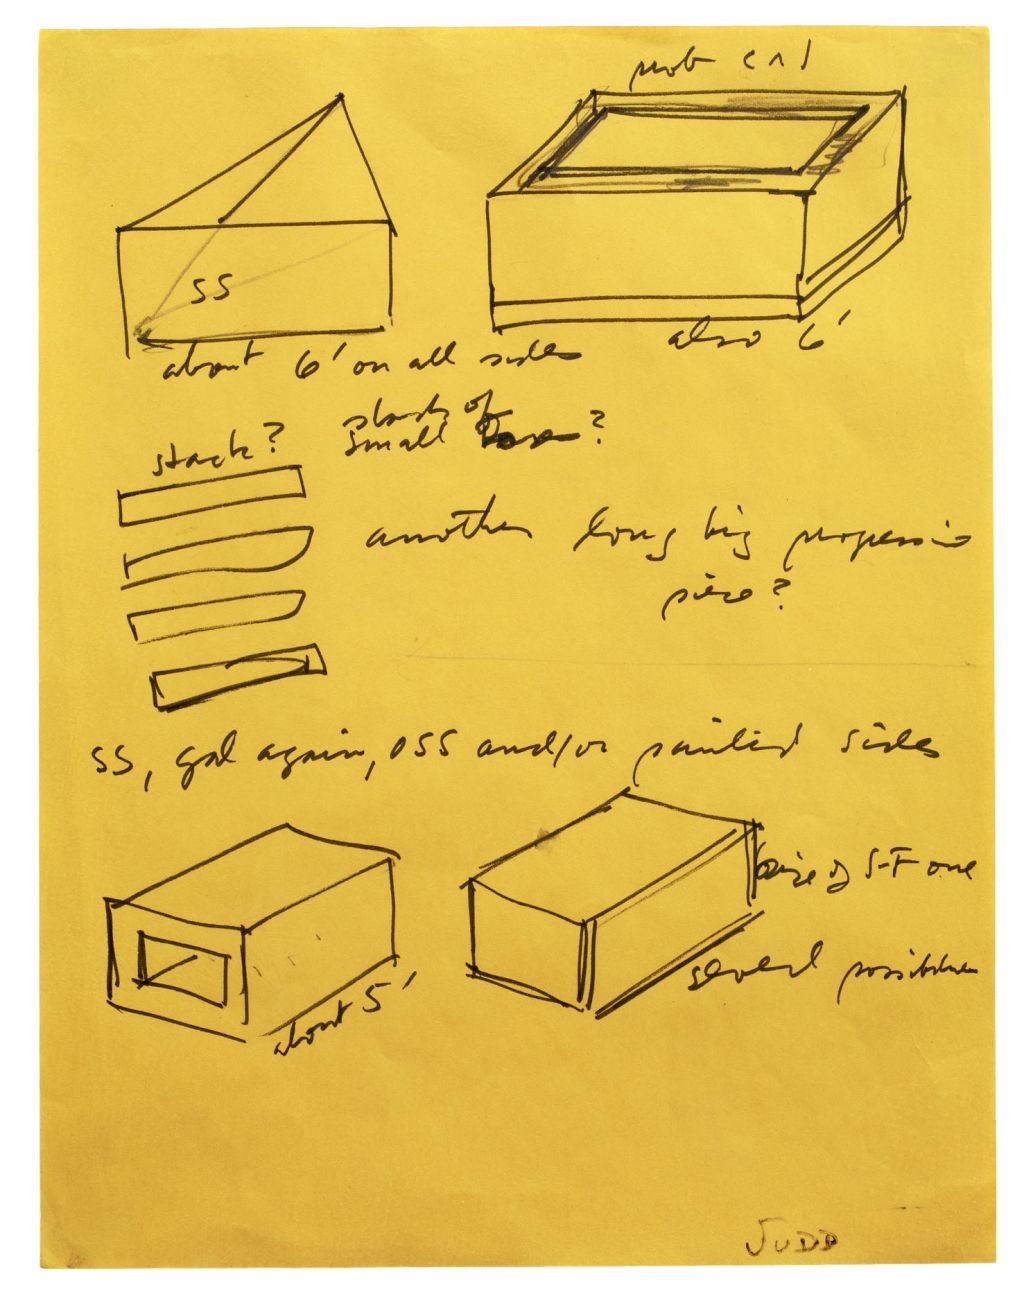 prob c n l
SS
about 6' on all sides
also 6'
stack?
stack of
small ?
another long big progression
piece?
SS, gal again, OSS and/or painted sides
size of S-F one
several possibilities
about 5'
JUDD